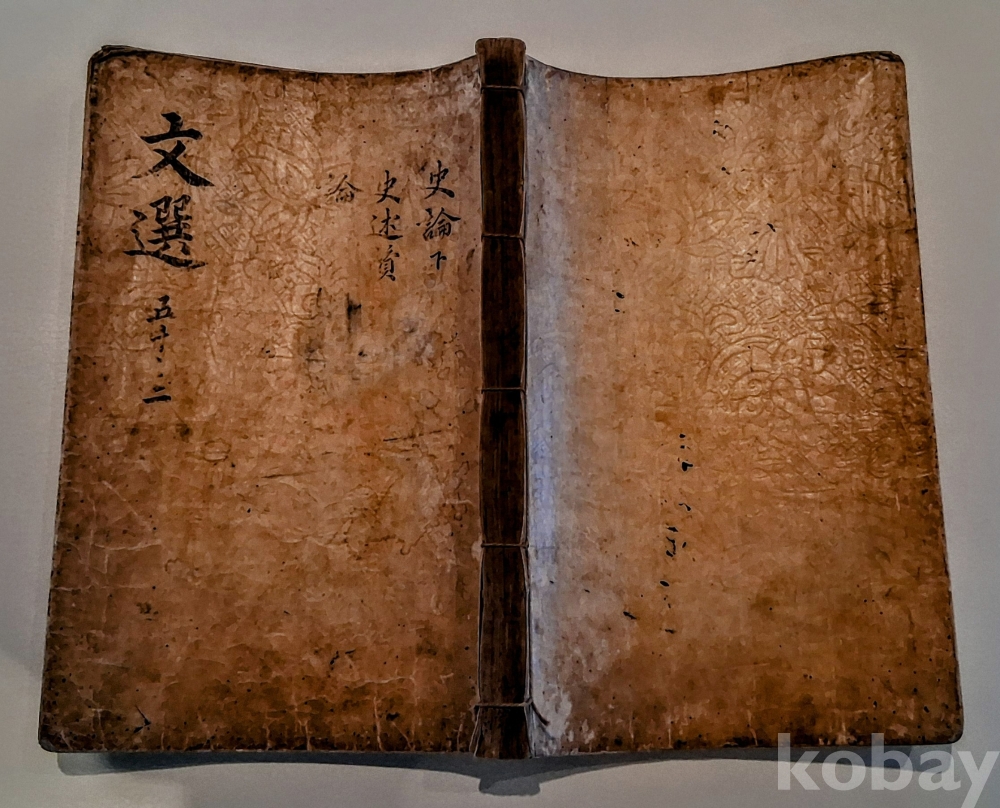 史論下
史述贊
論
文選 五十 二
kobay